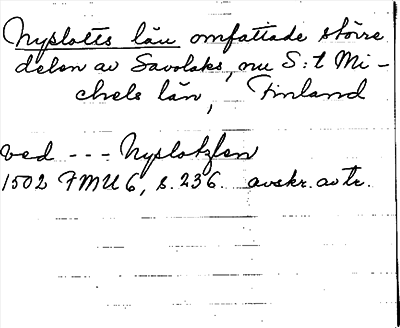 Nyslotts län omfattade större
delen av Savolaks, nu S:t Mi-
chels län, Finland
ved --- Nyslotzlen
1502 FMU 6, s. 236. avskr. av tr.